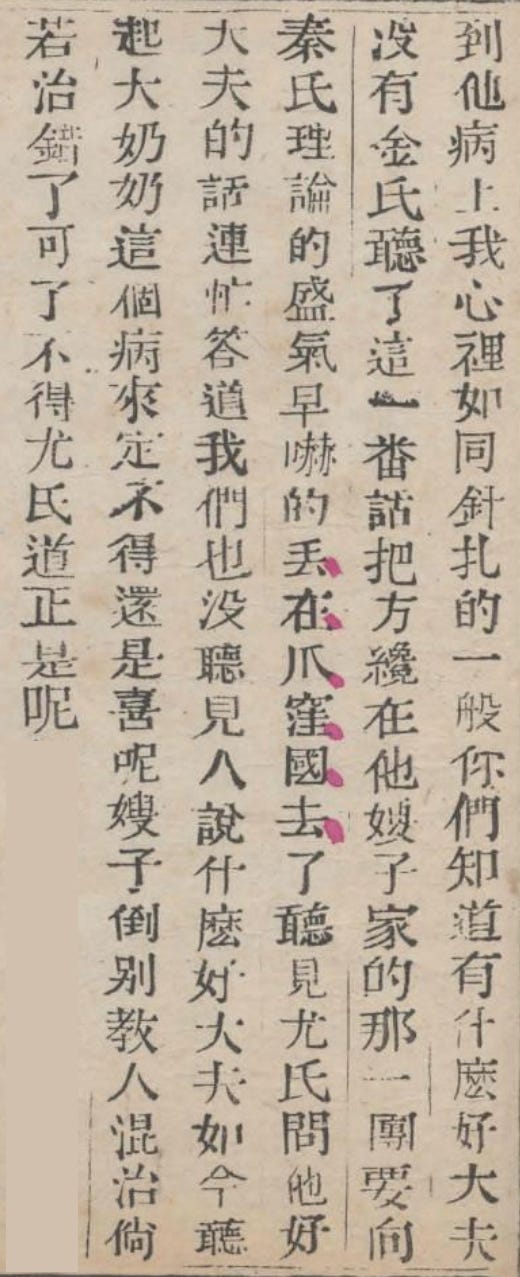 到他病上我心裡如同針扎的一般你們知道有什麽好大夫
没有金氏聽了這一番話把方纔在他嫂子家的那一團要向
秦氏理論的盛氣早嚇的丢在爪窪國去了聽見尤氏問他好
大夫的話連忙答道我們也没聽見人說什麽好大夫如今聽
起大奶奶這個病來定不得還是喜呢嫂子倒别教人混治倘
若治錯了可了不得尤氏道正是呢